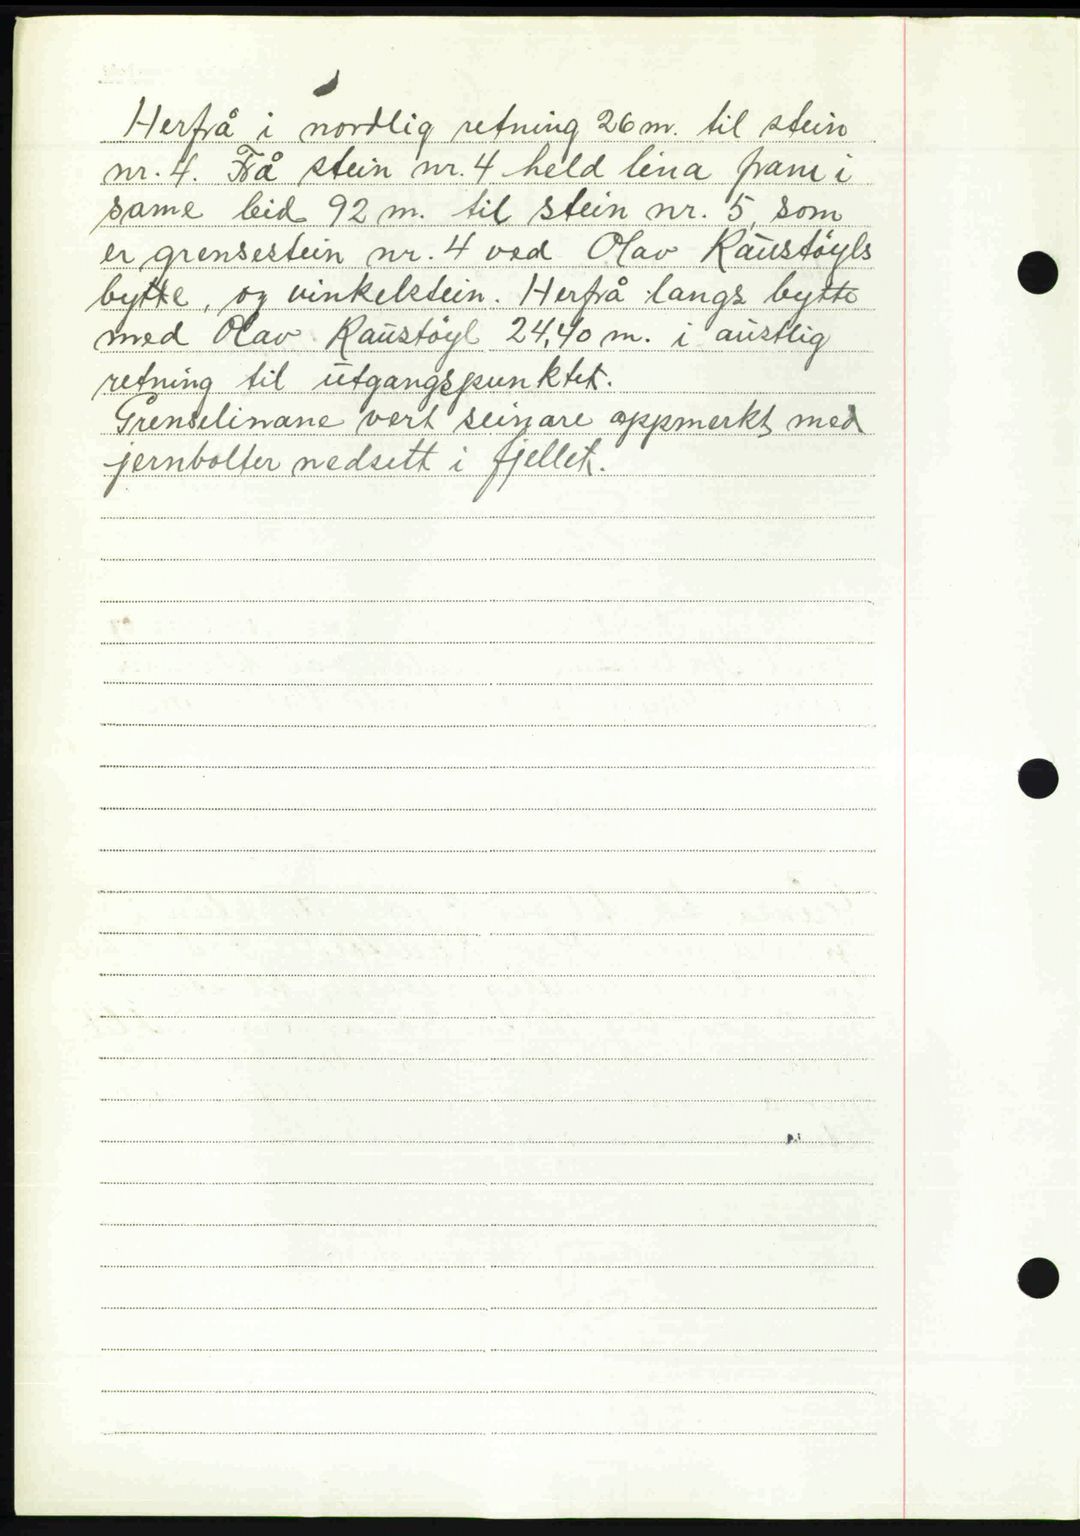 Herfrå i nordlig retning 26 m. til stein
nr. 4. Frå stein nr. 4 held lina fram i
same leid 92 m. til stein nr. 5, som
er grensestein nr. 4 ved Olav Raustöyls
bytte, og vinkelstein. Herfrå langs bytte
med Olav Raustöyl 24,40 m. i austlig
retning til utgangspunktet.
Grenselinane vert seinare oppmerkt med
jernbolter nedsett i fjellet.